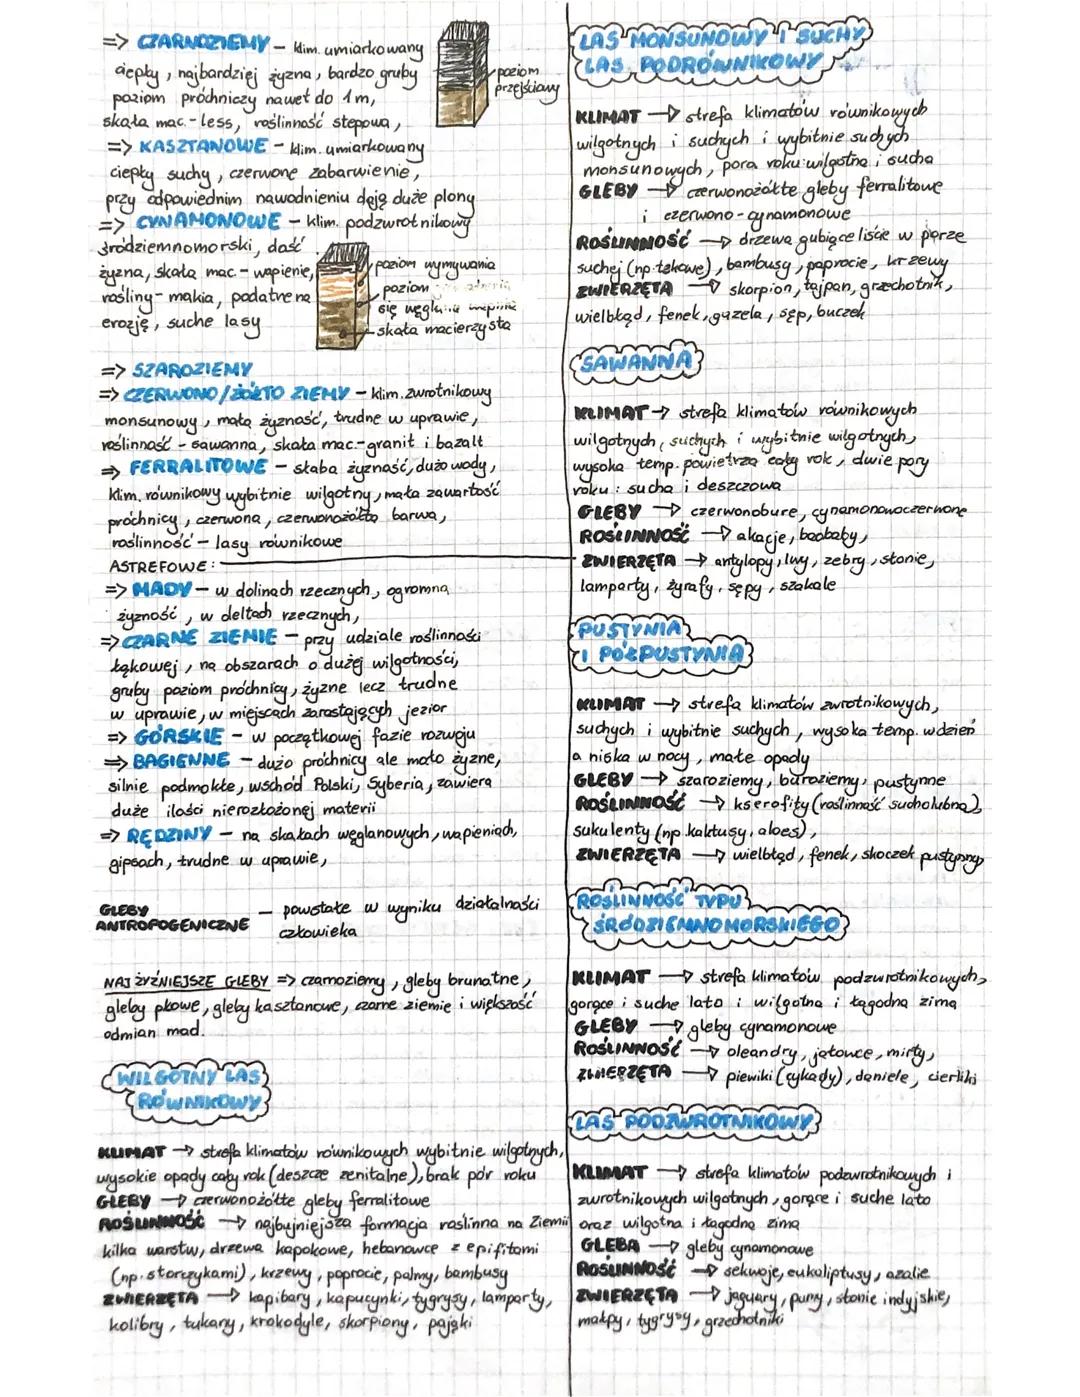 => CZARNOZIEMY – klim. umiarkowany
ciepły, najbardziej żyzna, bardzo gruby
poziom próchniczy nawet do 1 m,
skała mac. - less, roślinność stepowa,
poziom
przejściowy
=> KASZTANOWE – klim. umiarkowany
ciepły suchy, czerwone zabarwienie,
przy odpowiednim nawodnieniu dają duże plony
=> CYNAMONOWE – klim. podzwrotnikowy
śródziemnomorski, dość
żyzna, skała mac. - wapienie,
rośliny - makia, podatne na
erozję, suche lasy
poziom wymywania
poziom
się węglanu wapnia
skała macierzysta
=> SZAROZIEMY
=> CZERWONO/ŻÓŁTO ZIEMY – klim. zwrotnikowy
monsunowy, mała żyzność, trudne w uprawie,
roślinność - sawanna, skała mac.-granit i bazalt
=> FERRALITOWE – słaba żyzność, dużo wody,
klim. równikowy wybitnie wilgotny, mała zawartość
próchnicy, czerwona, czerwonożółta barwa,
roślinność – lasy równikowe
ASTREFOWE:
=> MADY – w dolinach rzecznych, ogromna
żyzność, w deltach rzecznych,
=> CZARNE ZIEMIE – przy udziale roślinności
łąkowej, na obszarach o dużej wilgotności,
gruby poziom próchnicy, żyzne lecz trudne
w uprawie, w miejscach zarastających jezior
=> GÓRSKIE – w początkowej fazie rozwoju
=> BAGIENNE – dużo próchnicy ale mało żyzne,
silnie podmokłe, wschód Polski, Syberia, zawiera
duże ilości nierozłożonej materii
=> RĘDZINY – na skałach węglanowych, wapieniach,
gipsach, trudne w uprawie,
GLEBY
ANTROPOGENICZNE – powstałe w wyniku działalności
człowieka
NAJŻYŹNIEJSZE GLEBY => czarnoziemy, gleby brunatne,
gleby płowe, gleby kasztanowe, czarne ziemie i większość
odmian mad.
WILGOTNY LAS
RÓWNIKOWY
KLIMAT → strefa klimatów równikowych wybitnie wilgotnych,
wysokie opady cały rok (deszcze zenitalne), brak pór roku
GLEBY → czerwonożółte gleby ferralitowe
ROŚLINNOŚĆ → najbujniejsza formacja roślinna na Ziemi
kilka warstw, drzewa kapokowe, hebanowce z epifitami
(np. storczykami), krzewy, paprocie, palmy, bambusy
ZWIERZĘTA → kapibary, kapucynki, tygrysy, lamparty,
kolibry, tukany, krokodyle, skorpiony, pająki
LAS MONSUNOWY I SUCHY
LAS PODRÓWNIKOWY
KLIMAT → strefa klimatów równikowych
wilgotnych i suchych i wybitnie suchych
monsunowych, pora roku: wilgotna i sucha
GLEBY → czerwonożółte gleby ferralitowe
i czerwono-cynamonowe
ROŚLINNOŚĆ → drzewa gubiące liście w porze
suchej (np. tekowe), bambusy, paprocie, krzewy
ZWIERZĘTA → skorpion, tajpan, grzechotnik,
wielbłąd, fenek, gazela, sęp, buczek
SAWANNA
KLIMAT → strefa klimatów równikowych
wilgotnych, suchych i wybitnie wilgotnych,
wysoka temp. powietrza cały rok, dwie pory
roku: sucha i deszczowa
GLEBY → czerwonobure, cynamonowoczerwone
ROŚLINNOŚĆ → akacje, baobaby,
ZWIERZĘTA → antylopy, lwy, zebry, słonie,
lamparty, żyrafy, sępy, szakale
PUSTYNIA
I PÓŁPUSTYNIA
KLIMAT → strefa klimatów zwrotnikowych,
suchych i wybitnie suchych, wysoka temp. w dzień
a niska w nocy, małe opady
GLEBY → szaroziemy, buroziemy, pustynne
ROŚLINNOŚĆ → kserofity (roślinność sucholubna),
sukulenty (np. kaktusy, aloes),
ZWIERZĘTA → wielbłąd, fenek, skoczek pustynny
ROŚLINNOŚĆ TYPU
ŚRÓDZIEMNOMORSKIEGO
KLIMAT → strefa klimatów podzwrotnikowych,
gorące i suche lato i wilgotna i łagodna zima
GLEBY → gleby cynamonowe
ROŚLINNOŚĆ → oleandry, jałowce, mirty,
ZWIERZĘTA → piewiki (cykady), daniele, cierliki
LAS PODZWROTNIKOWY
KLIMAT → strefa klimatów podzwrotnikowych i
zwrotnikowych wilgotnych, gorące i suche lato
oraz wilgotna i łagodna zima
GLEBA → gleby cynamonowe
ROŚLINNOŚĆ → sekwoje, eukaliptusy, azalie
ZWIERZĘTA → jaguary, pumy, słonie indyjskie,
małpy, tygrysy, grzechotniki